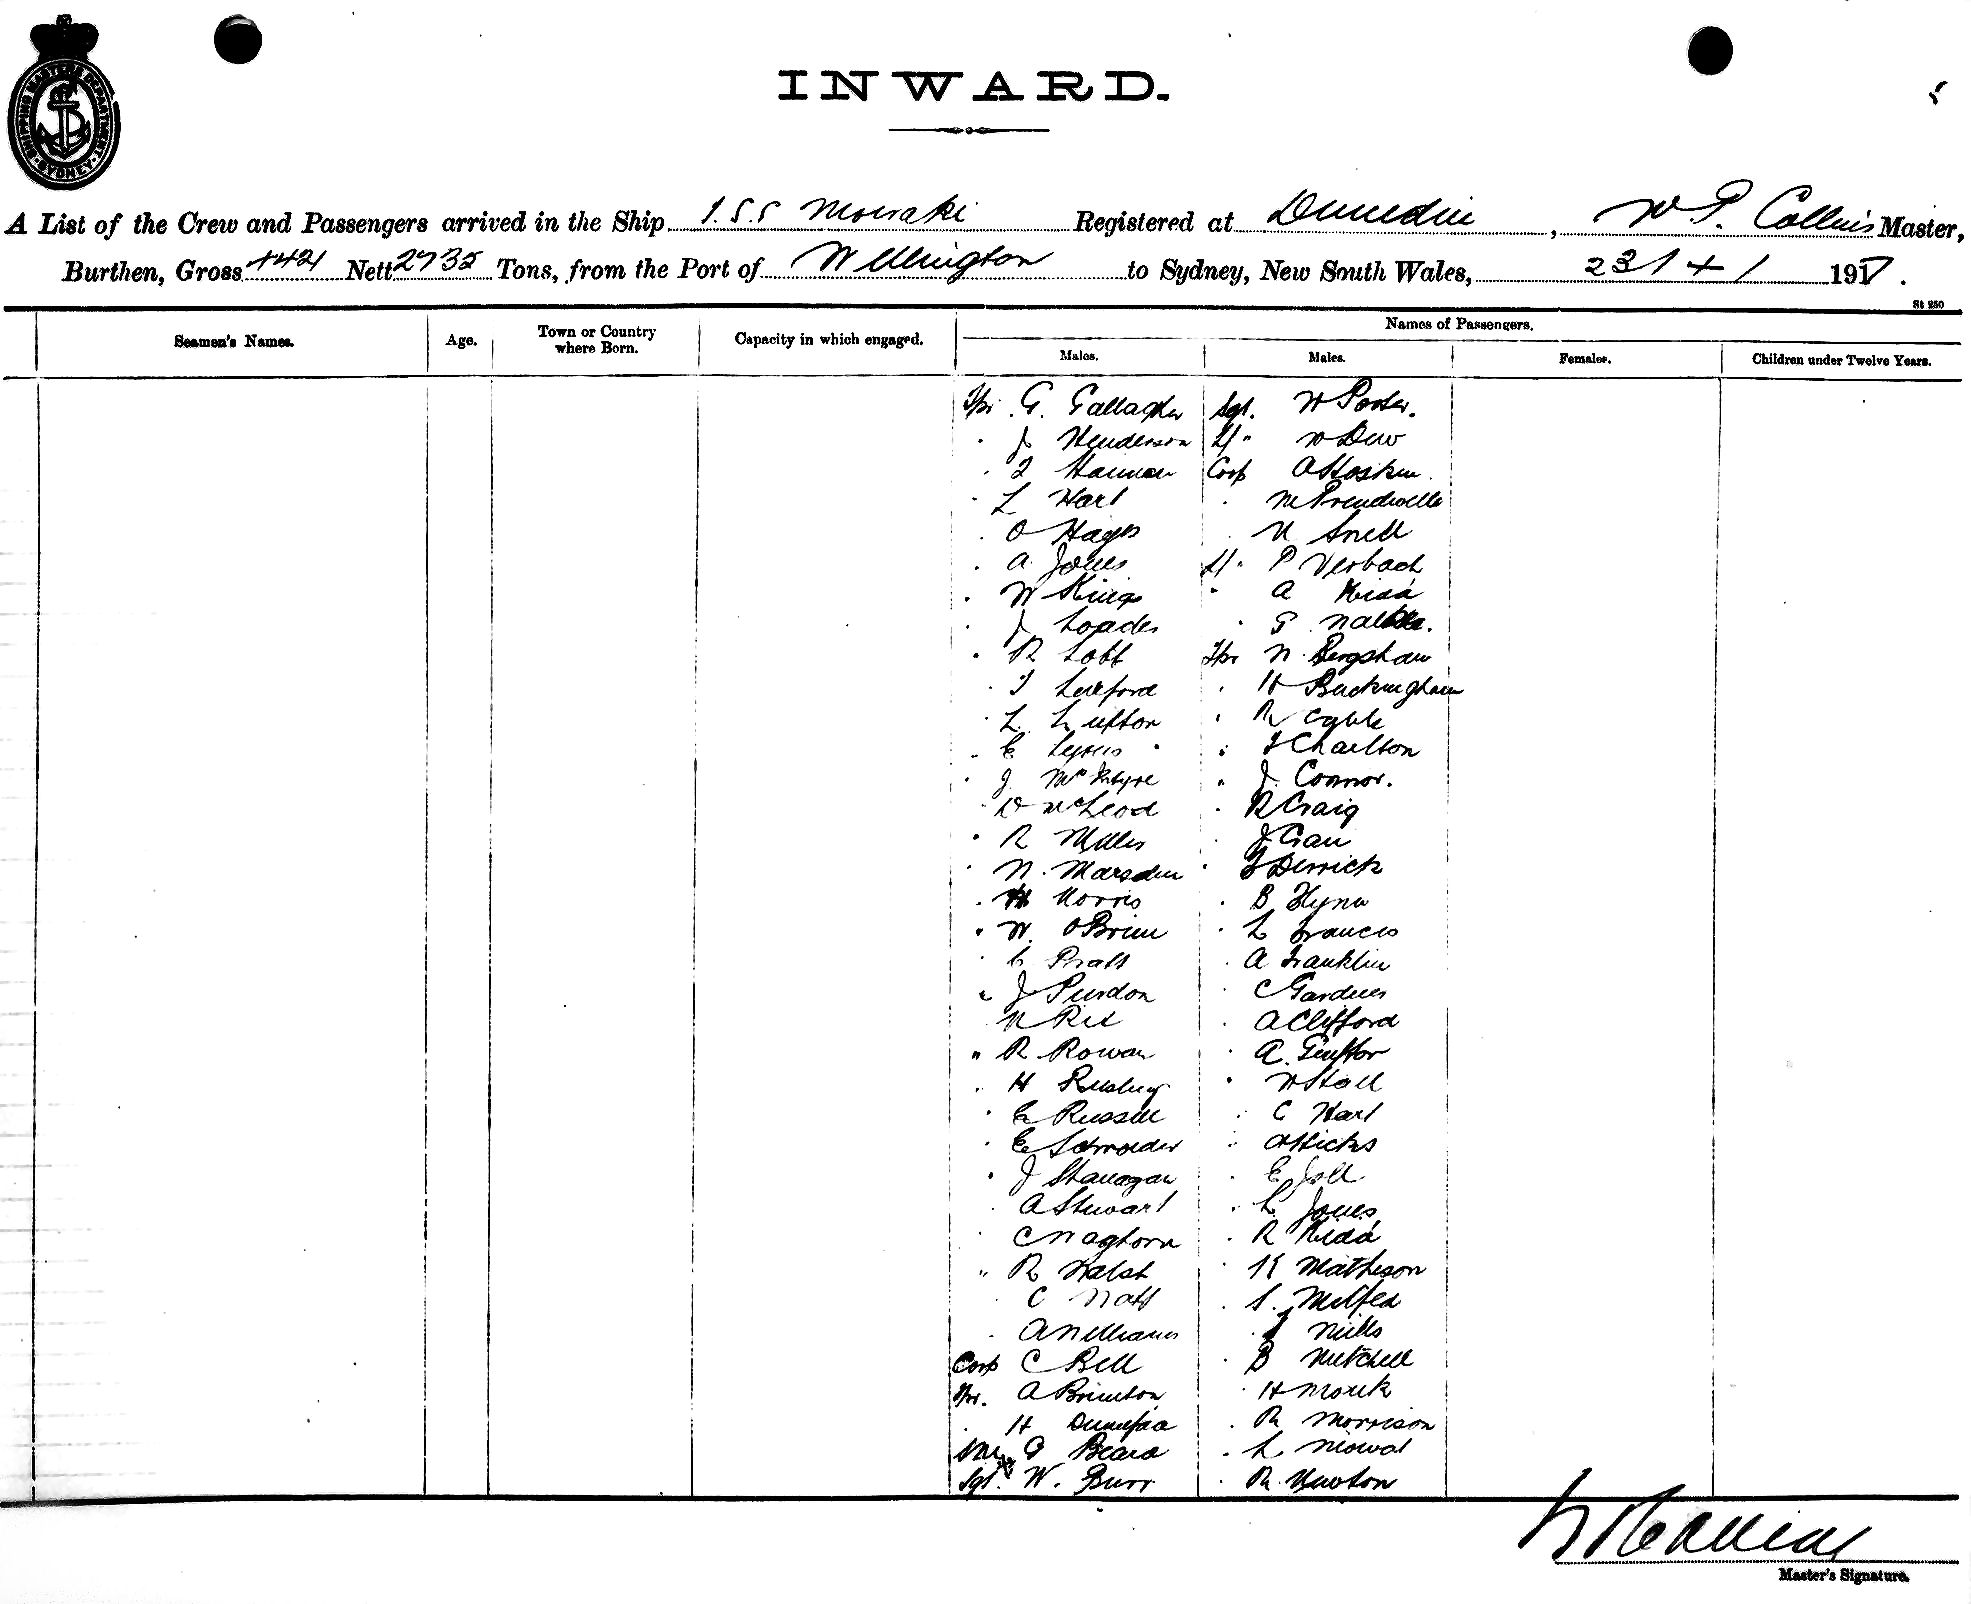 SHIPPING MASTERS DEPARTMENT
SYDNEY
INWARD.
A List of the Crew and Passengers arrived in the Ship T.S.S Moeraki Registered at Dunedin, W P. Collins Master,
Burthen, Gross 4421 Nett 2735 Tons, from the Port of Wellington to Sydney, New South Wales, 191
St 250
Seamen's Names. Age. Town or Country where Born. Capacity in which engaged. Names of Passengers.
Males. Males. Females. Children under Twelve Years.
Tpr G. Gallagher Sgt. W Porter.
" J Henderson W Dew
" Hannan Corp A Hoskin
" L Hart
" O Hayes Snell
" A Jones P Verbach
" W Kings " A Kidd
" J Loader
" R Lobb Tpr N. Bergshaw
" T Luxford " H Buckingham
" L. Lufton " R
" C Lyons " T Charlton
" J McIntyre " J Connor.
" D McLeod " R Craig
" R Miller " J
" N. Marsden " T Derrick
" H Norris " B Flynn
" W. OBrien " L Francis
" C Pratt " A Franklin
" J Purdon " C Gardner
" A Clifford
" R Rowan " A.
" H " W
" E Russell " C Hart
" E Schroeder " A Hicks
" J Shanagan " E Joll
" A Stewart " L. Jones
" C Waghorn " R Kidd
" R Walsh " K Matheson
" C Watt " S.
" A Williams " Mills
Corp C Bell " B Mitchell
Tpr. A Brunton " H Monk
" H " R Morrison
G Beard " L Mowat
Sgt. W. Burr " R. Newton
Master's Signature.